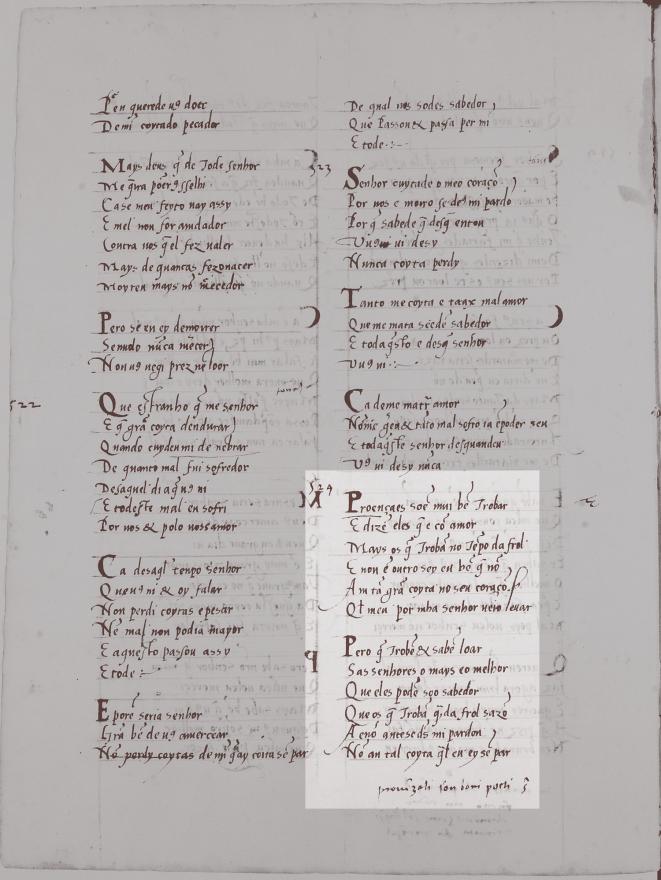 Pen querede uꝯ doer
De mi coytado pecador
Mays deus q̃ de Tode senhor
Me q̃ra
Ca se meu feyto uay assy
E mel non for aiudador
Contra uos q̃ el fez ualer
Mays de quantas fez naçer
Moyreu mays nõ mẽcedor
Pero se eu ey de moirer
Sen uolo nũca meẽcer
Non uꝯ ueg i prez nẽ loor
522
Que estranho q̃ me senhor
E q̃ grã coyta dendurar
Quando cuydeu mi de nẽbrar
De quanto mal fui sofredor
Desaquel dia q̃ uꝯ ui
E todeste mal eu sofri
Por uos & polo uoss amor
Ca desaq̃l tenpo senhor
Que uꝯ ui & oy falar
Non perdi coytas e pesar
Nẽ mal non podia mayor
E aquesto passou assy
E tode :~
E pore seria senhor
Grã bẽ de uꝯ amercear
De mi q̃ ay coita sẽ par
De qual uos sodes sabedor
Que passou & passa per mi
E tode :~
523
Senhor cuytado o meu coraçõ
Por uos e moiro se deꝯ mi pardo
Por q̃ sabede q̃ desq̃ enton
Uꝯ ui desy
Nunca coyta perdy
Tanto me coyta e trax mal amor
Que me mata seede sabedor
E tod aq̃sto e desq̃ senhor
Uꝯ ui :~
Ca de me matr̃ amor
E tod aq̃ste senhor des quand eu
Uꝯ ui desy nũca
524
Proençaes soẽ mui bẽ Trobar
E dizẽ eles q̃ e cõ amor
Mays os q̃ Trobã no Tẽpo da frol
E non ẽ outro sey eu bẽ q̃ nõ
Am tã grã coyta no seu coraçõ
Ql̃ meu por mha senhor ueio leuar
Pero q̃ Trobã & sabẽ loar
Sas senhores o mays eo melhor
Que eles podẽ soo sabedor
Que os q̃ Trobã q̃nda frol sazõ
A e nõ ante se dꝯ mi pardon
Nõ an tal coyta ql̃ eu ey sẽ par
prouenzali son boni poeti